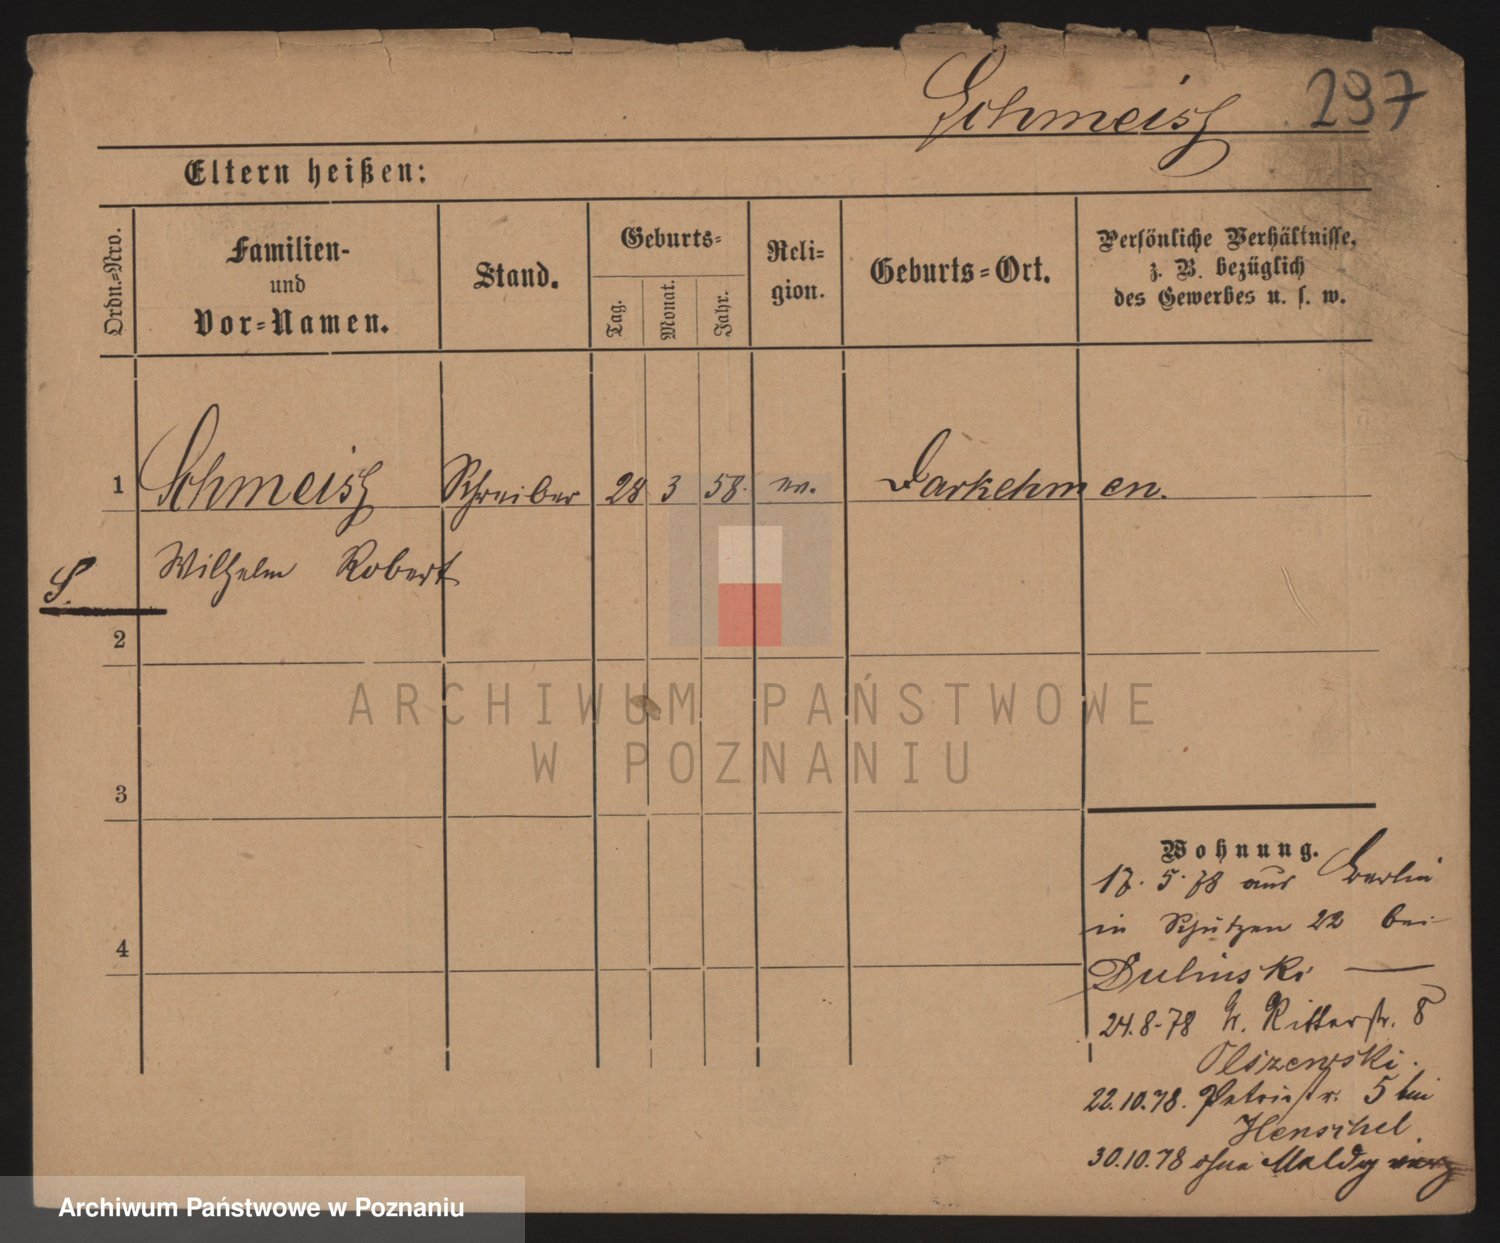 Schmeisz 297
Eltern heißen:
Ordn.=Nro.
Familien-
und
Vor=Namen.
Stand.
Geburts=
Tag.
Monat.
Jahr.
Reli=
gion.
Geburts=Ort.
Persönliche Verhältnisse,
z. B. bezüglich
des Gewerbes u. s. w.
1 Schmeisz Schreiber 28 3 58. ev. Darkehmen.
Wilhelm Robert
S.
2
ARCHIWUM PAŃSTWOWE
W POZNANIU
3
Wohnung.
17. 5. 78 aus Berlin
in Schützen 22 bei
4
Dulinski —
24.8-78 W. Ritterstr. 8
Olszewski.
22.10.78. Petristr. 5 bei
Henschel.
30.10.78 ohne Meldg
Archiwum Państwowe w Poznaniu